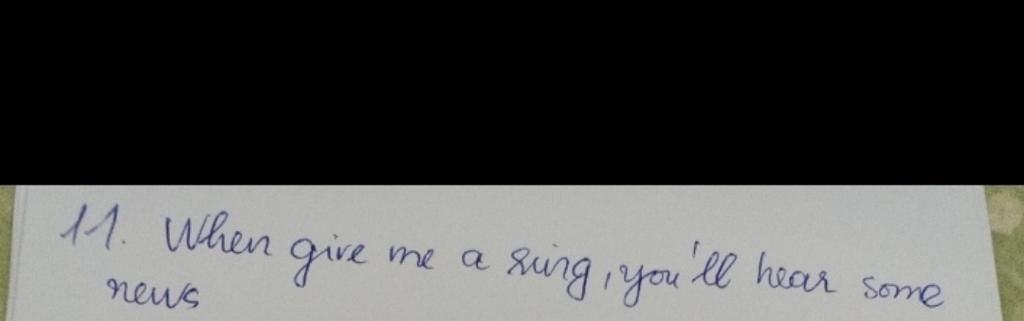 11. When give me a ring, you'll hear some
news